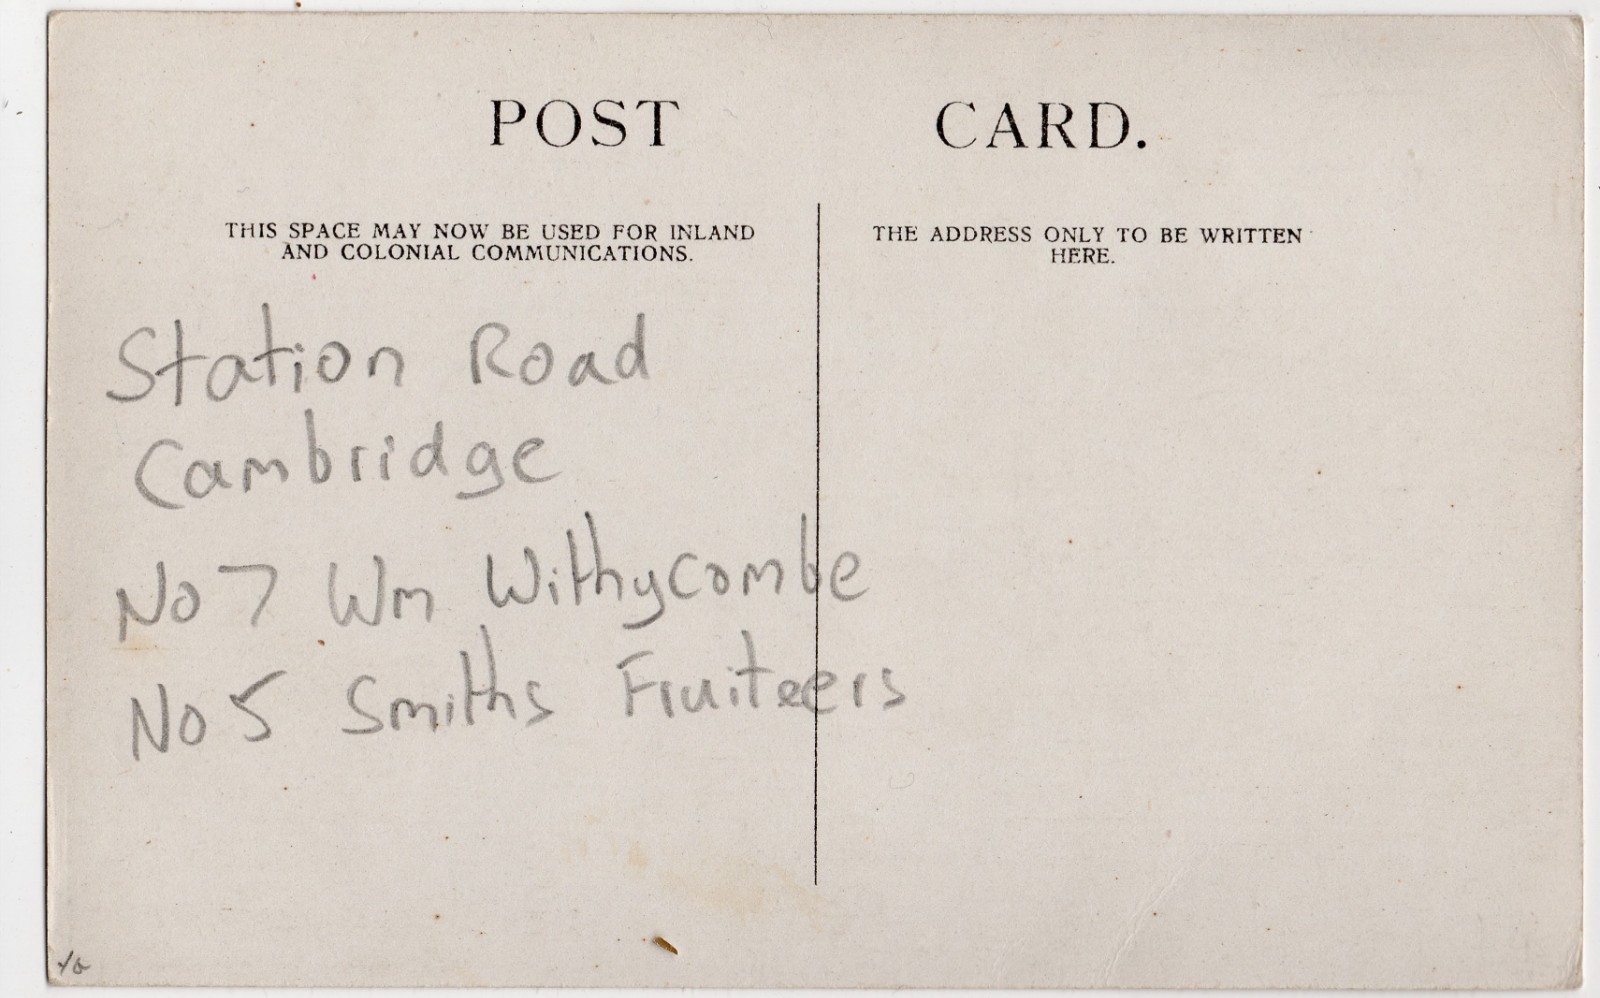 POST CARD.
THIS SPACE MAY NOW BE USED FOR INLAND
AND COLONIAL COMMUNICATIONS.
THE ADDRESS ONLY TO BE WRITTEN
HERE.
Station Road
Cambridge
No 7 Wm Withycombe
No 5 Smiths Fruiteers